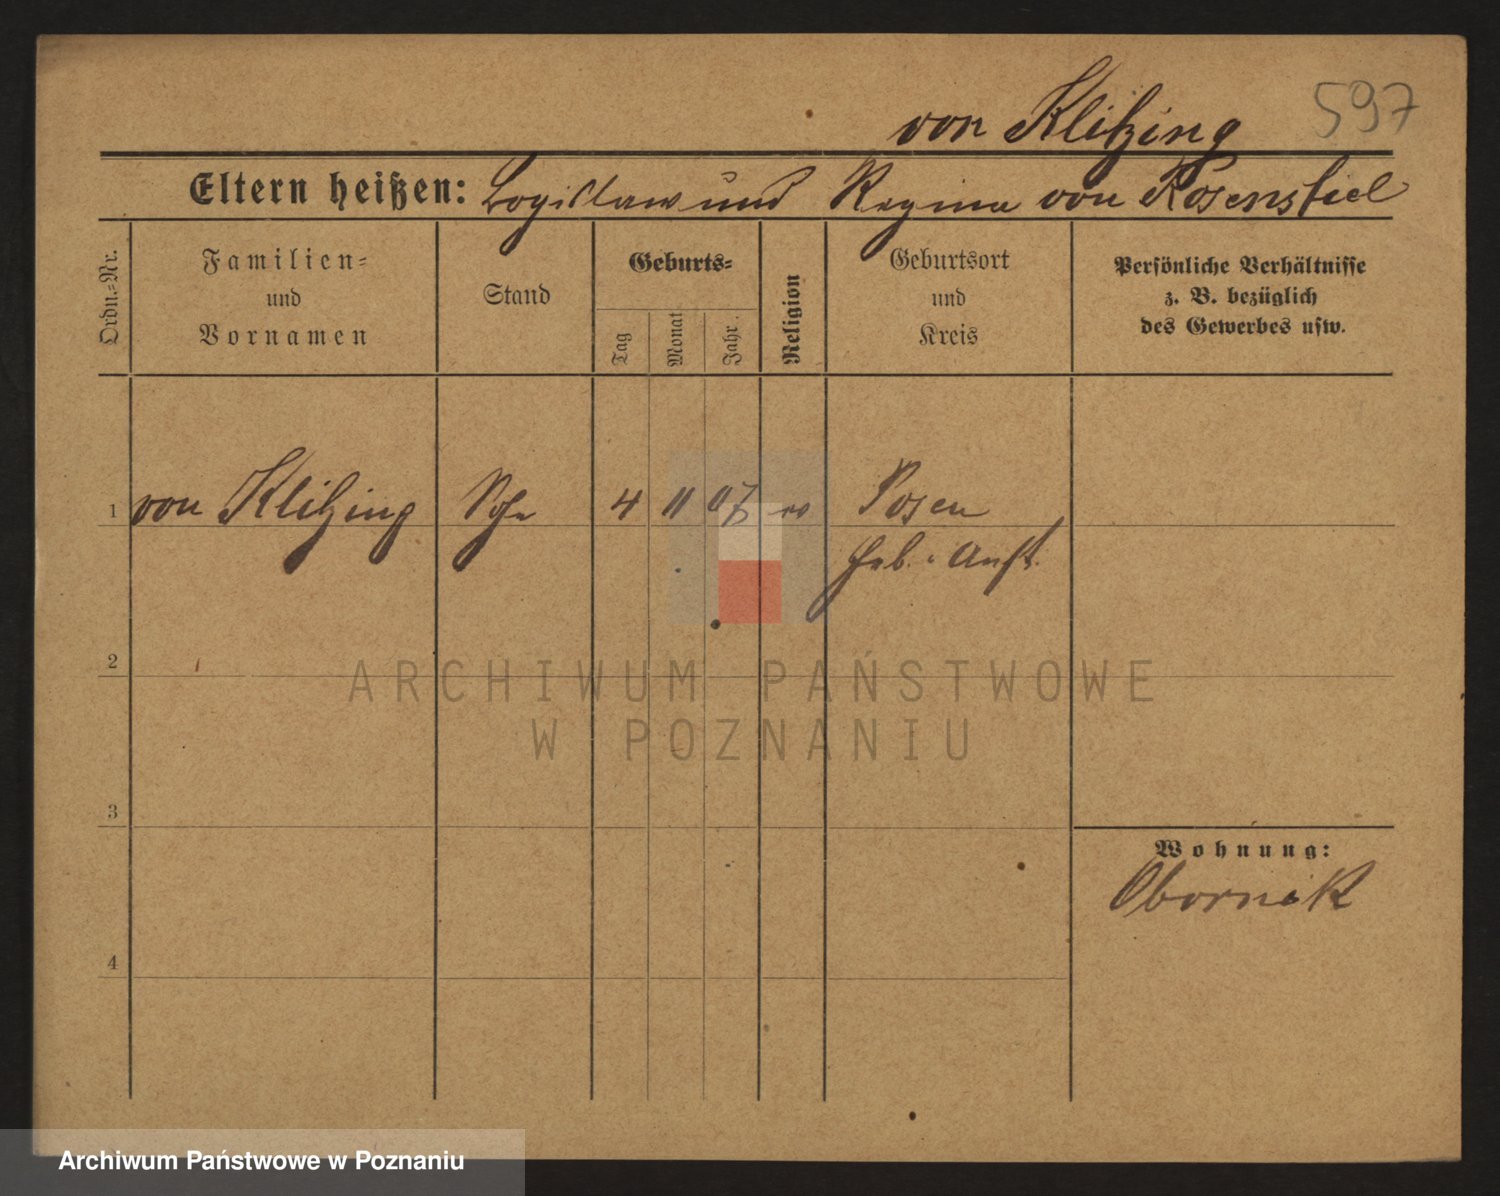 597
von Klitzing
Eltern heißen: Logislaw und Regina von Rosenstiel
Ordn.-Nr.
Familien-
und
Vornamen
Stand
Geburts-
Tag
Monat
Jahr.
Religion
Geburtsort
und
Kreis
Persönliche Verhältnisse
z. B. bezüglich
des Gewerbes usw.
1 von Klitzing Sohn 4 11 07 ev Posen
Heb. Anst.
2
3
Wohnung:
Obornik
4
ARCHIWUM PAŃSTWOWE
W POZNANIU
Archiwum Państwowe w Poznaniu